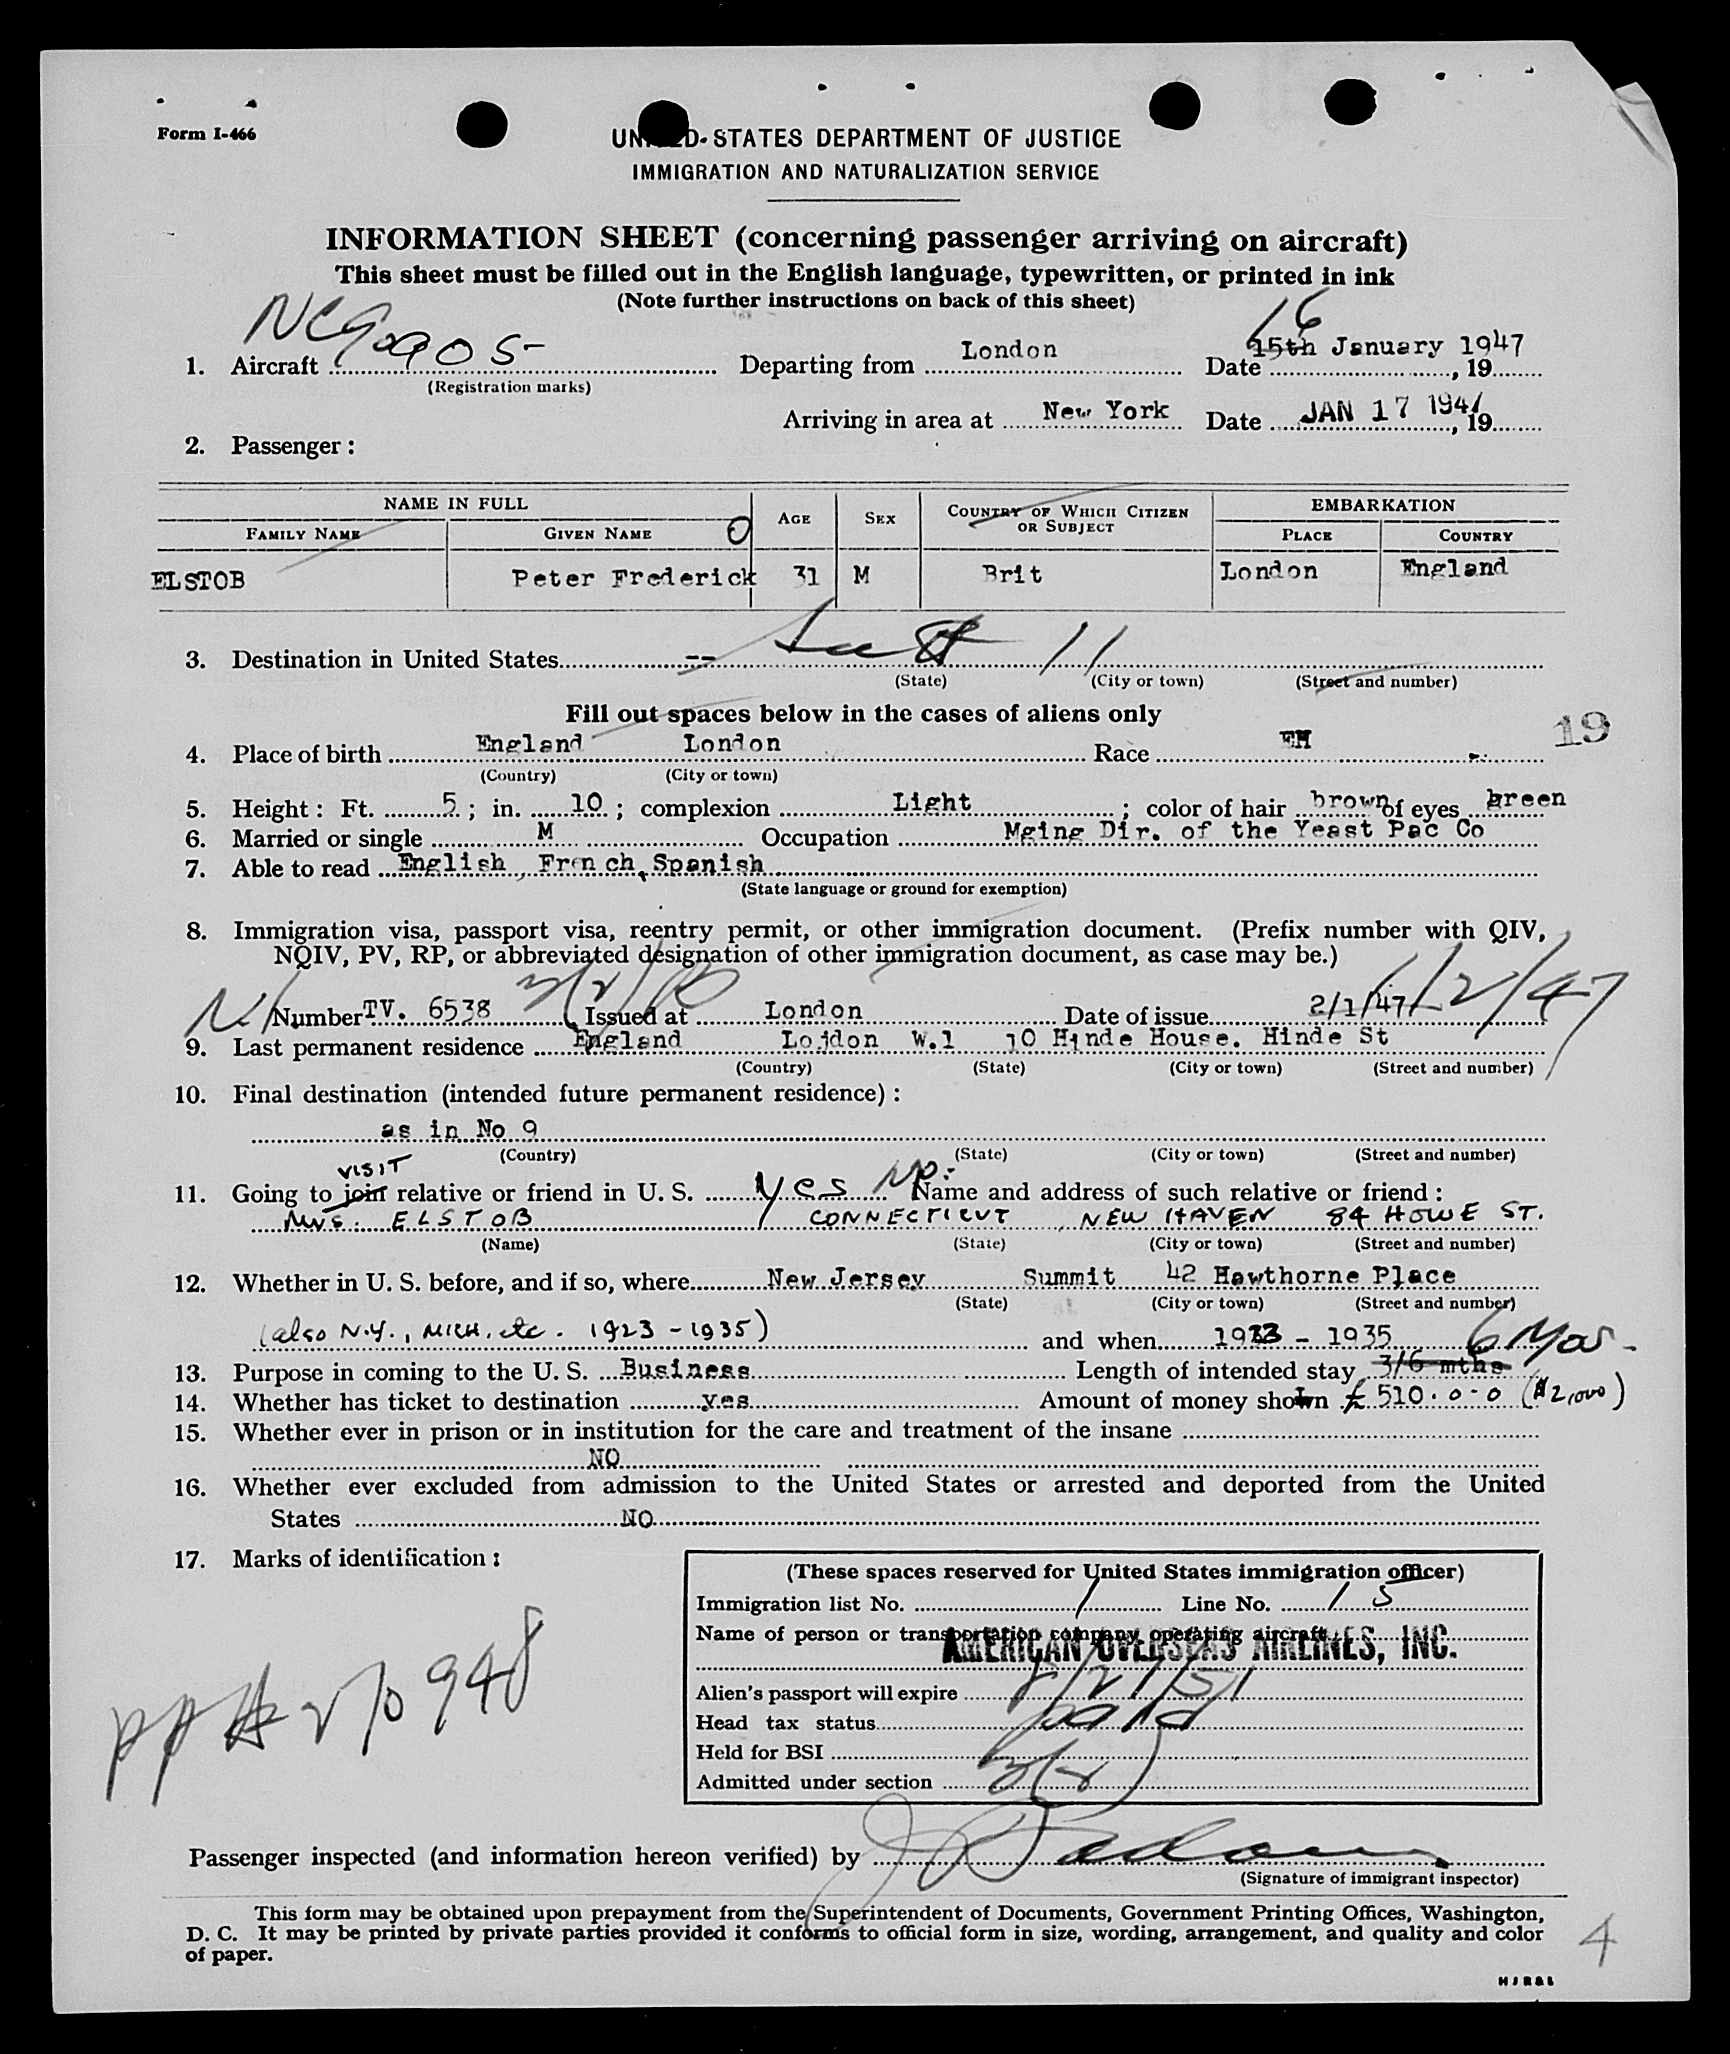 Form I-466
UNITED STATES DEPARTMENT OF JUSTICE
IMMIGRATION AND NATURALIZATION SERVICE
INFORMATION SHEET (concerning passenger arriving on aircraft)
This sheet must be filled out in the English language, typewritten, or printed in ink
(Note further instructions on back of this sheet)
16
1. Aircraft NC90905 Departing from London Date 15th January 1947, 19
(Registration marks)
Arriving in area at New York Date JAN 17 1947, 19
2. Passenger:
NAME IN FULL AGE SEX COUNTRY OF WHICH CITIZEN OR SUBJECT EMBARKATION
FAMILY NAME GIVEN NAME PLACE COUNTRY
ELSTOB Peter Frederick 31 M Brit London England
3. Destination in United States -- See # 11
(State) (City or town) (Street and number)
Fill out spaces below in the cases of aliens only
19
4. Place of birth England London Race EM
(Country) (City or town)
5. Height: Ft. 5; in. 10; complexion Light; color of hair brown of eyes green
6. Married or single M Occupation Mging Dir. of the Yeast Pac Co
7. Able to read English, French, Spanish
(State language or ground for exemption)
8. Immigration visa, passport visa, reentry permit, or other immigration document. (Prefix number with QIV,
NQIV, PV, RP, or abbreviated designation of other immigration document, as case may be.)
Number TV. 6538 3(2) Issued at London Date of issue 2/1/47 1/2/47
9. Last permanent residence England London W.1 10 Hinde House. Hinde St
(Country) (State) (City or town) (Street and number)
10. Final destination (intended future permanent residence):
as in No 9
(Country) (State) (City or town) (Street and number)
VISIT
11. Going to join relative or friend in U. S. Yes No. Name and address of such relative or friend:
Mrs. ELSTOB CONNECTICUT, NEW HAVEN 84 HOWE ST.
(Name) (State) (City or town) (Street and number)
12. Whether in U. S. before, and if so, where New Jersey Summit 42 Hawthorne Place
(State) (City or town) (Street and number)
(also N.Y., MICH. etc. 1923 - 1935) and when 1923 - 1935
6 Mos.
13. Purpose in coming to the U. S. Business Length of intended stay 3/6 mths
14. Whether has ticket to destination yes Amount of money shown £ 510.0-0 ($2,000)
15. Whether ever in prison or in institution for the care and treatment of the insane
NO
16. Whether ever excluded from admission to the United States or arrested and deported from the United
States NO
17. Marks of identification:
PP# 270948
(These spaces reserved for United States immigration officer)
Immigration list No. 1 Line No. 15
Name of person or transportation company operating aircraft
AMERICAN OVERSEAS AIRLINES, INC.
Alien's passport will expire 8/21/51
Head tax status paid
Held for BSI
Admitted under section 3(2)
Passenger inspected (and information hereon verified) by
(Signature of immigrant inspector)
This form may be obtained upon prepayment from the Superintendent of Documents, Government Printing Offices, Washington,
D. C. It may be printed by private parties provided it conforms to official form in size, wording, arrangement, and quality and color
of paper.
4